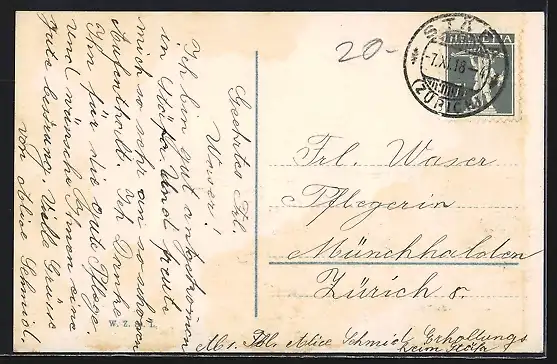 Geehrtes Frl.
Waser!
Ich bin gut angekommen
in Stäfa. Und freute
mich so sehr an so schönen
Aufenthalt. Ich Danke
Ihn für die gute Pflege
und wünsche Ihnen eine
gute besserung Viele Grüsse
von Alice Schmid.
20-
STÄFA
-7.XI.18-
(ZÜRICH)
HELVETIA
Frl. Waser
Pflegerin
Münchhalden
Zürich 8.
W. Z.
Abs. Alice Schmid Erholungs
heim Stäfa